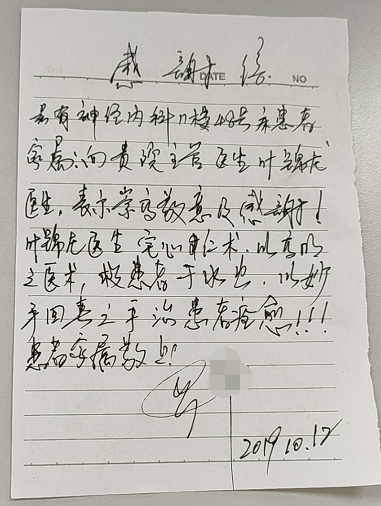 感謝信
DATE
NO
具有神经内科11楼48号床患者
家属:向贵院主管医生叶锦龙
医生,表示崇高敬意及感謝!
叶錦龙医生宅心仁术,以高明
之医术,救患者于水火,以妙
手回春之手治患者痊愈!!!
患者家属敬上!
2019.10.17